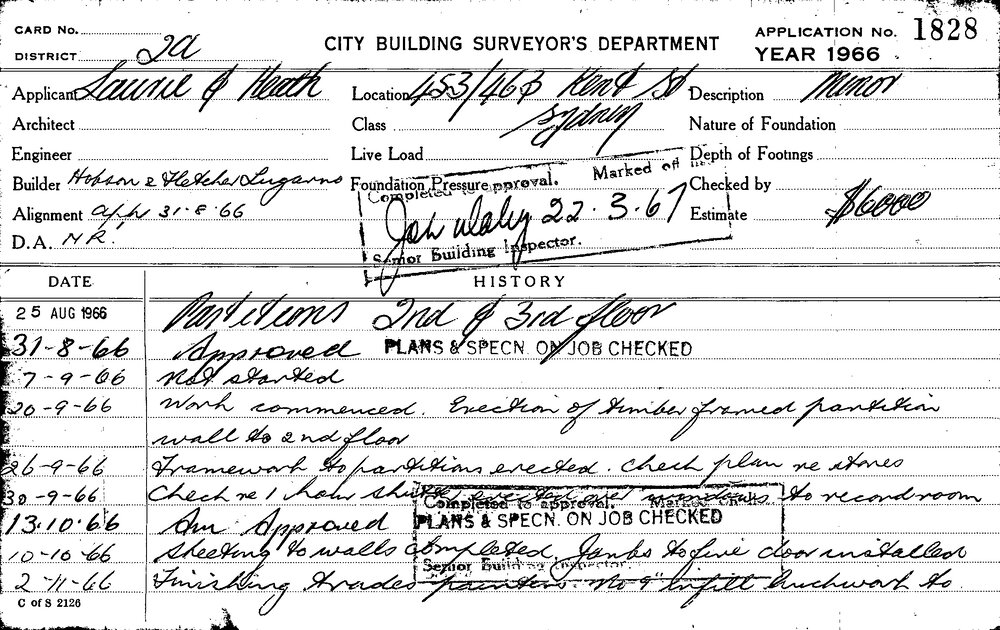 CARD No.
DISTRICT 2a
CITY BUILDING SURVEYOR'S DEPARTMENT
APPLICATION No. 1828
YEAR 1966
Applicant Laurie & Heath
Location 453/463 Kent St Sydney
Description Minor
Architect
Class
Nature of Foundation
Engineer
Live Load
Depth of Footings
Builder Hobson & Fletcher Lugarno
Foundation Pressure
Checked by
Completed to approval. Marked off
22.3.67
Senior Building Inspector.
Alignment 31-8-66
Estimate $6000
D.A. N.R.
DATE HISTORY
25 AUG 1966 Partitions 2nd & 3rd floor
31-8-66 Approved PLANS & SPECN. ON JOB CHECKED
7-9-66 Not started
20-9-66 Work commenced. Erection of timber framed partition
wall to 2nd floor
26-9-66 Framework to partitions erected. Check plan re stores
30-9-66 Check re 1 hour shutter erected over windows to record room
Completed to approval. Marked
13.10.66 Am Approved PLANS & SPECN. ON JOB CHECKED
10-10-66 Sheeting to walls completed. Jambs to fire door installed
Senior Building Inspector.
2-11-66 Finishing trades painters. No 9" infill brickwork to
C of S 2126